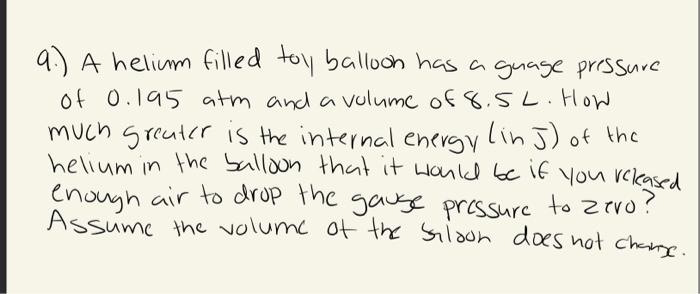 9.) A helium filled toy balloon has a guage pressure
of 0.195 atm and a volume of 8.5 L. How
much greater is the internal energy (in J) of the
helium in the balloon that it would be if you released
enough air to drop the gauge pressure to zero?
Assume the volume of the baloon does not change.